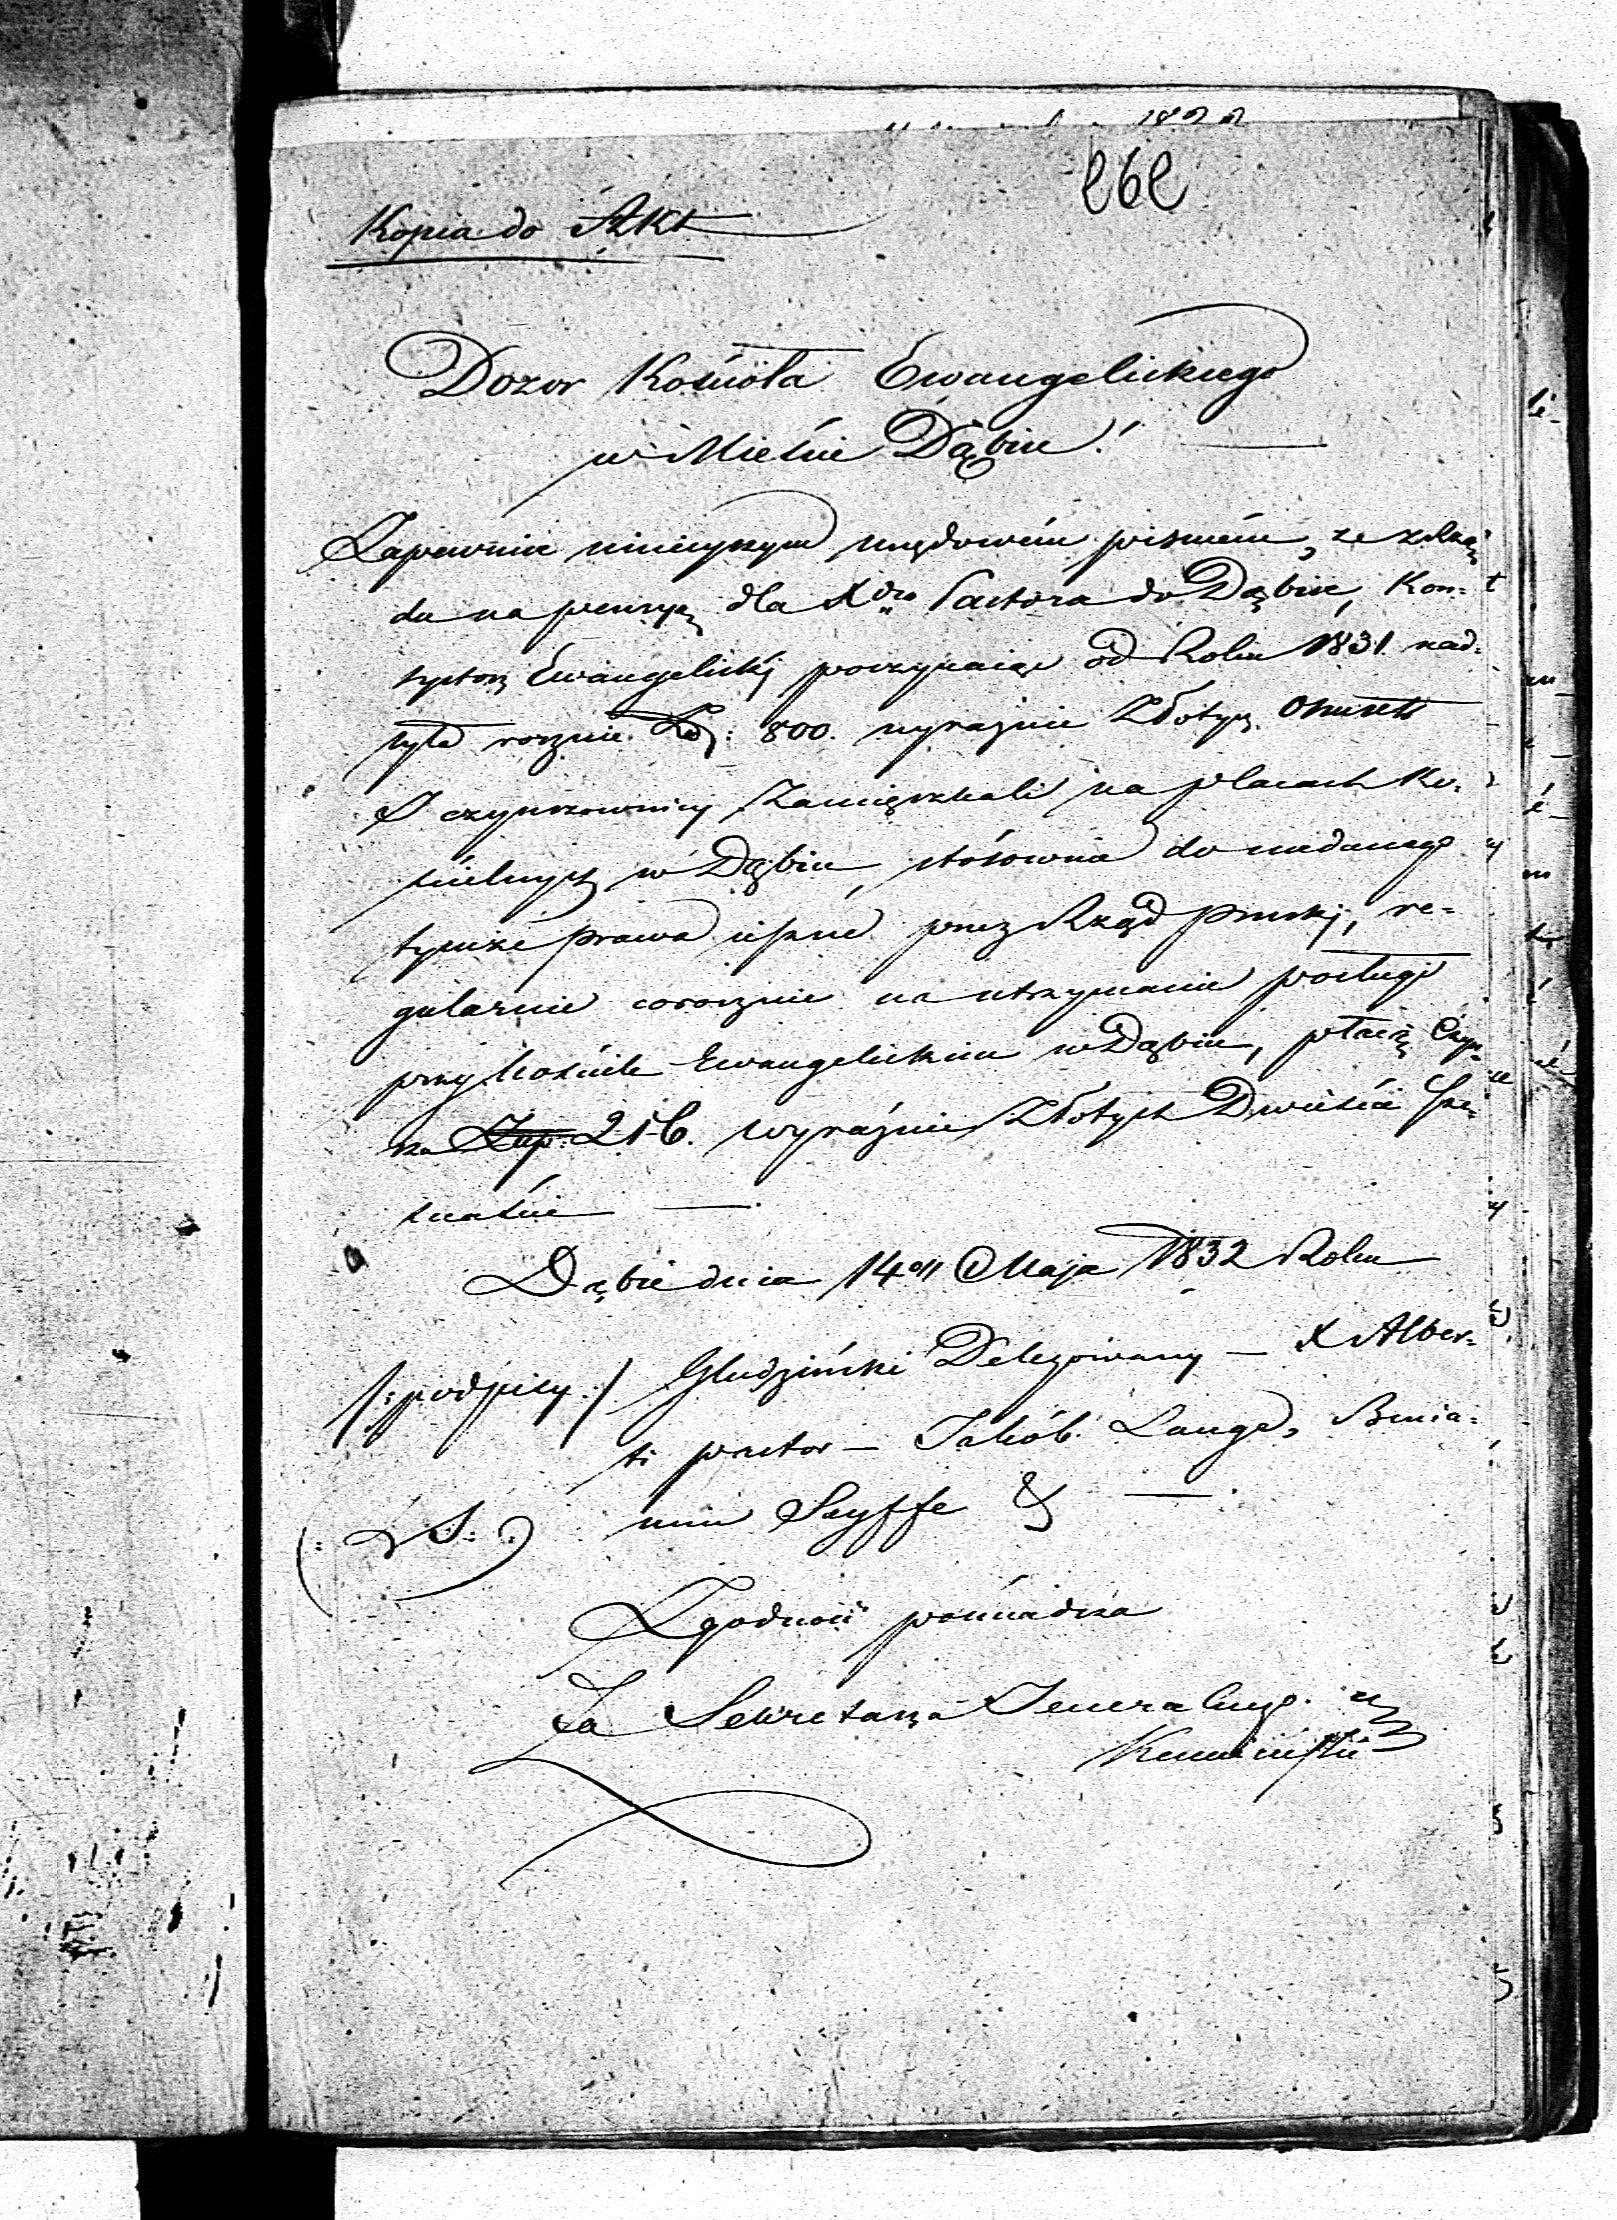 262
Kopia do Akt
Dozor Kościoła Ewangelickiego
w Mieście Dąbiu!
Zapewnia ninieyszym urzędowém pismém, że
du na pensyą dla Xdza Pastora do Dąbia, Kon-
systorz Ewangelicki poczynaiąc od Roku 1831 nad-
syła rocznie Zł: 800. wyraznie Złotych Ośmset
A czynszownicy Zamięszkali na placach Ko-
ścielnych w Dąbiu, stósownie do nadanego
tymże prawa przez Rząd pruski, re-
gularnie corocznie na utrzymanie posługi
przy Kościele Ewangelickim w Dąbiu, płacą Czyn-
szu Złp: 216. wyraźnie Złotych Dwieście Sze-
snaście —
Dąbie dnia 14o Maja 1832 Roku
/: podpisy :/ Gludziński Delegowany — X Alber-
ti pastor — Jakób Lange, Benia-
min Seyffe &
(: L S. :)
Zgodność poświadcza
Za Sekretarza Jeneralnego